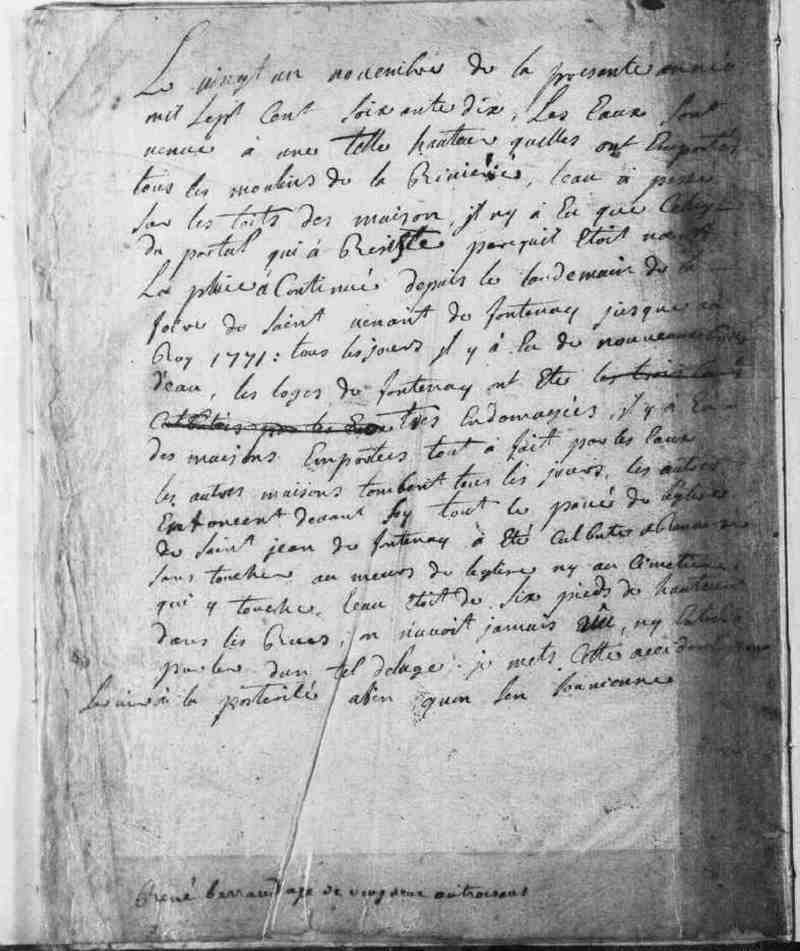 Le vingt un novembre de la presente année
mil Sept Cent Soixante dix, Les Eaux Sont
venue à une telle hauteur quelles ont Emportés
tous les moulins de la Riviere, leau à passé
Sur les toits des maison, jl ny à Eu que Celuy
du portal qui à Reisste parcequil Etoit
La pluie à Continué depuis le landemain de la
foire de Saint venant de fontenay jusque
Roy 1771: tous les jours jl y à Eu de nouveau
d'eau, les loges de fontenay ont Eté les trois
Culbutées par les Eaux tres Endomagées, jl y à Eu
des maisons Emportées tout à fait par les Eaux
les autres maisons tombent tous les jours, les autres
Enfoncent devant Soy tout le pavé de leglise
de Saint jean de fontenay à Eté Culbuté
Sans toucher au meurs de leglise ny au Cimetiere
qui y touche, leau Etoit de Six pieds de hauteur
dans les Rues, on navoit jamais vûe, ny Entendu
parler dun tel deluge. je mets Cette accident pour
Servir à la posterité afin quon Sen Souvienne
René barraud age de vingt deux